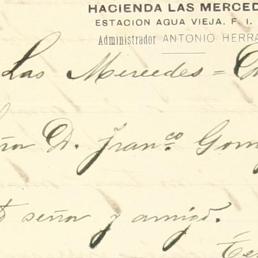 HACIENDA LAS MERCED
ESTACION AGUA VIEJA. F. I.
Administrador ANTONIO HERRA
Las Mercedes =
D. Franco Gom
señor y amigo.